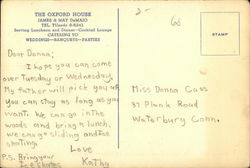 THE OXFORD HOUSE
JAMES & MAY DeMAIO
TEL. TUxedo 8-6241
Serving Luncheon and Dinner-Cocktail Lounge
CATERING TO
WEDDINGS—BANQUETS—PARTIES
2-
STAMP
Dear Donna;
I hope you can come
over Tuesday or Wednesday.
My father will pick you up.
You can stay as long as you
want. We can go in the
woods and bring a lunch,
we can go sliding and ice
skating.
Love
Kathy
P.S. Bring your
ice skates
Miss Donna Cass
37 Plank Road
Waterbury Conn.